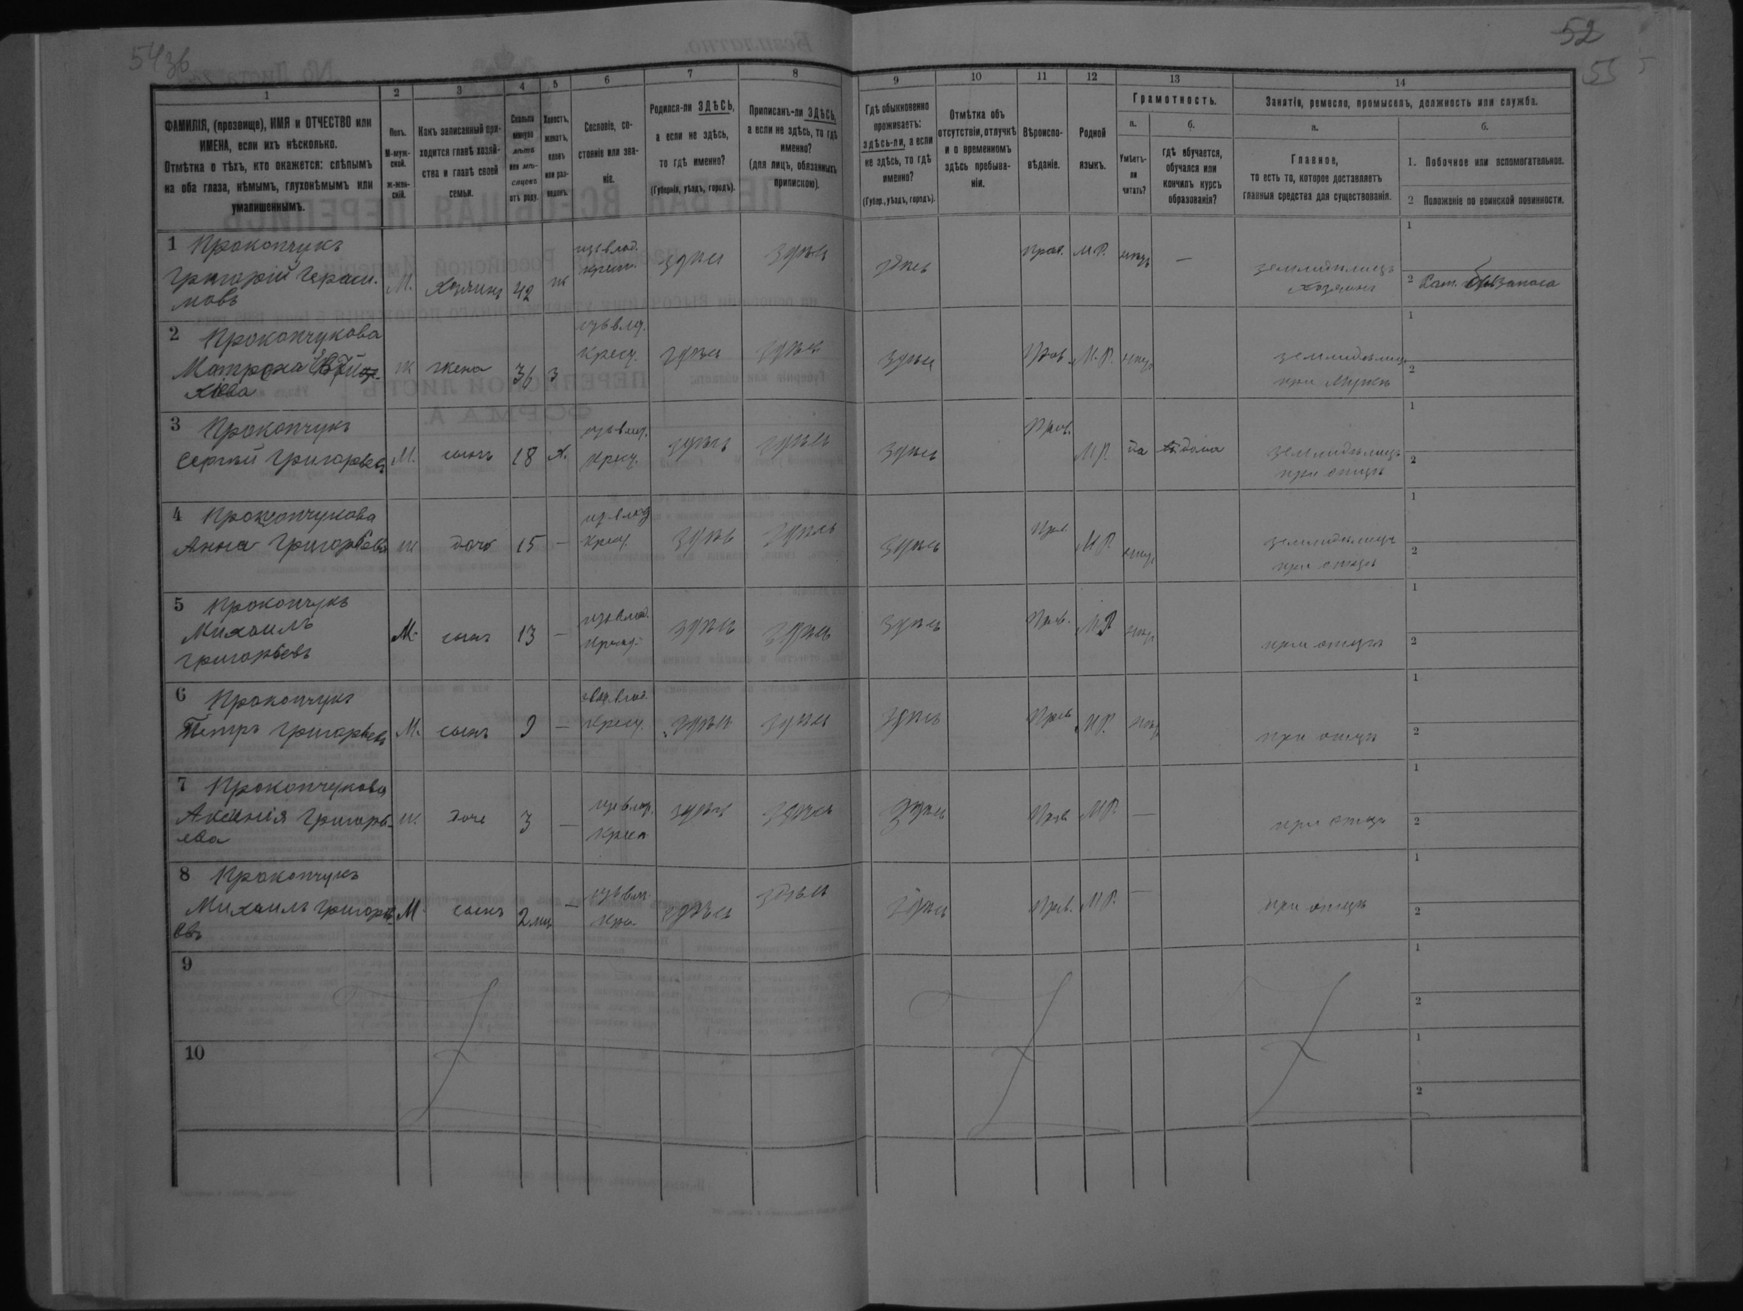 54 зв
52
55
1 2 3 4 5 6 7 8 9 10 11 12 13 14
ФАМИЛІЯ, (прозвище), ИМЯ и ОТЧЕСТВО или ИМЕНА, если ихъ нѣсколько.
Отмѣтка о тѣхъ, кто окажется: слѣпымъ на оба глаза, нѣмымъ, глухонѣмымъ или умалишеннымъ.
Полъ.
М-муж-
ской.
Ж-жен-
скій.
Какъ записанный при-
ходится главѣ хозяй-
ства и главѣ своей
семьи.
Сколько
минуло
лѣтъ
или мѣ-
сяцевъ
отъ роду.
Холостъ,
женатъ,
вдовъ
или раз-
веденъ.
Сословіе, со-
стояніе или зва-
ніе.
Родился-ли ЗДѢСЬ,
а если не здѣсь,
то гдѣ именно?
(Губернія, уѣздъ, городъ).
Приписанъ-ли ЗДѢСЬ,
а если не здѣсь, то гдѣ
именно?
(для лицъ, обязанныхъ
припискою).
Гдѣ обыкновенно
проживаетъ:
здѣсь-ли, а если
не здѣсь, то гдѣ
именно?
(Губер., уѣздъ, городъ).
Отмѣтка объ
отсутствіи, отлучкѣ
и о временномъ
здѣсь пребыва-
ніи.
Вѣроиспо-
вѣданіе.
Родной
языкъ.
Грамотность.
а.
Умѣетъ-
ли
читать?
б.
Гдѣ обучается,
обучался или
кончилъ курсъ
образованія?
Занятія, ремесло, промыселъ, должность или служба.
а.
Главное,
то есть то, которое доставляетъ
главныя средства для существованія.
б.
1. Побочное или вспомогательное.
2 Положеніе по воинской повинности.
1 Прокопчукъ
Григорій Гераси-
мовъ
М. хозяинъ 42 ж
изъ влад.
крест.
здѣсь здѣсь здѣсь Прав. М.Р. нѣтъ —
земледѣлецъ
хозяинъ
1
2
запаса
2 Прокопчукова
Матрона
ж жена 36 з
изъ влд.
крест.
здѣсь здѣсь здѣсь Прав. М.Р. нѣтъ
земледѣлец
при мужѣ
1
2
3 Прокопчукъ
Сергѣй Григорьевъ
М. сынъ 18 х.
изъ влад.
крест.
здѣсь здѣсь здѣсь Прав. М.Р. да дома
земледѣлецъ
при отцѣ
1
2
4 Прокопчукова
Анна Григорьева
ж дочь 15 —
изъ влад
крест.
здѣсь здѣсь здѣсь Прав М.Р. нѣтъ
земледѣлецъ
при отцѣ
1
2
5 Прокопчукъ
Михаилъ
Григорьевъ
М. сынъ 13 —
изъ влад.
крест.
здѣсь здѣсь здѣсь Прав. М.Р. нѣтъ
при отцѣ
1
2
6 Прокопчукъ
Петръ Григорьевъ
М. сынъ 9 —
изъ влад.
крест.
здѣсь здѣсь здѣсь Прав М.Р. нѣтъ
при отцѣ
1
2
7 Прокопчукова
Аксенія Григорь-
ева
ж. дочь 3 —
изъ влад.
крест
здѣсь здѣсь здѣсь Прав М.Р. —
при отцѣ
1
2
8 Прокопчукъ
Михаилъ Григорь-
евъ
М. сынъ 2 мѣс —
изъ влад
кре
здѣсь здѣсь здѣсь Прав. М.Р. —
при отцѣ
1
2
9
1
2
10
1
2